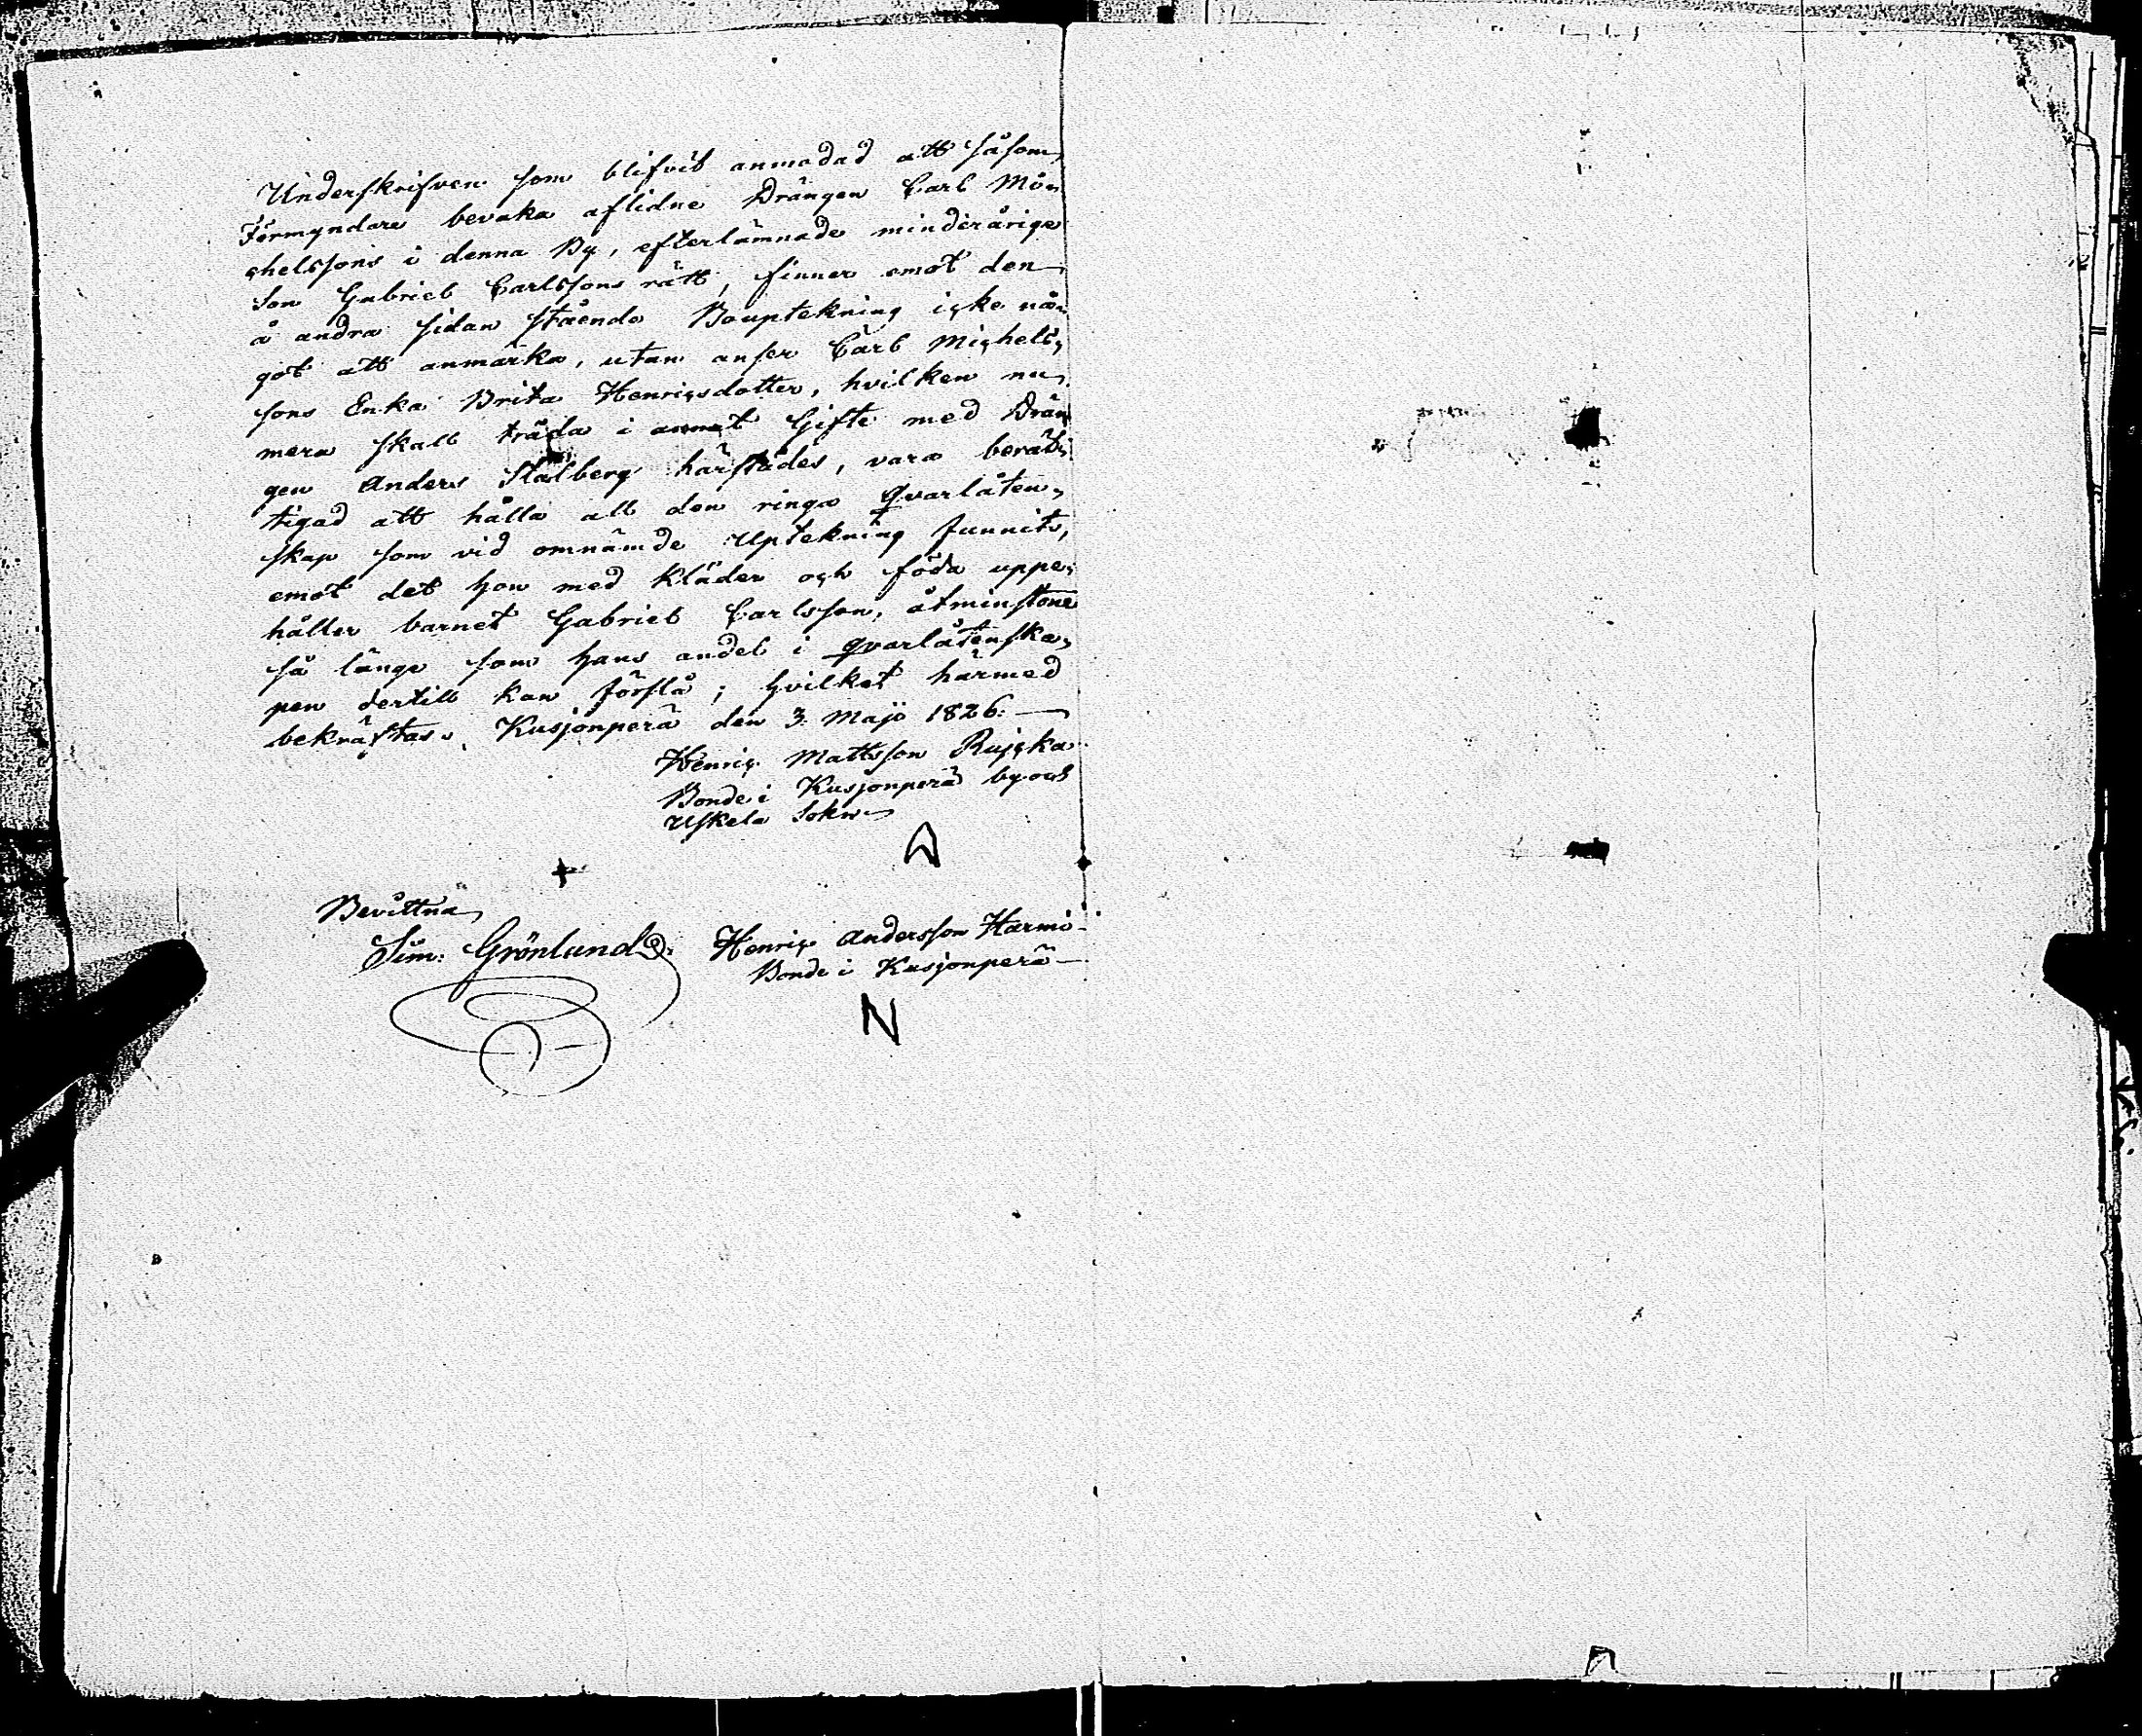 Underskrifven som blifvit anmodad att såsom
Förmyndare bevaka aflidne Drängen Carl Mi-
chelssons i denna By, efterlämnade minderårige
Son Gabriel Carlssons rätt, finner emot den
å andra sidan stående Bouptekning icke nå-
got att anmärka, utan anser Carl Michels-
sons Enka Brita Henricsdotter, hvilken nu-
mera skall träda i annat Gifte med Drän
gen Anders Stålberg härstädes, vara berät-
tigad att hålla all den ringa qvarlåten-
skap som vid omnämde Uptekning funnits,
emot det hon med kläder och föda uppe-
håller barnet Gabriel Carlsson, åtminstone
så länge som hans andel i qvarlåtenska-
pen dertill kan förslå; hvilket härmed
bekräftas. Kusjonperä den 3. Majo 1826.
Henric Mattsson Rujcka
Bonde i Kusjonperä by och
Uskela Sokn
Bevittna
Sim: Grönlund. Henric Andersson Harmo
Bonde i Kusjonperä
N